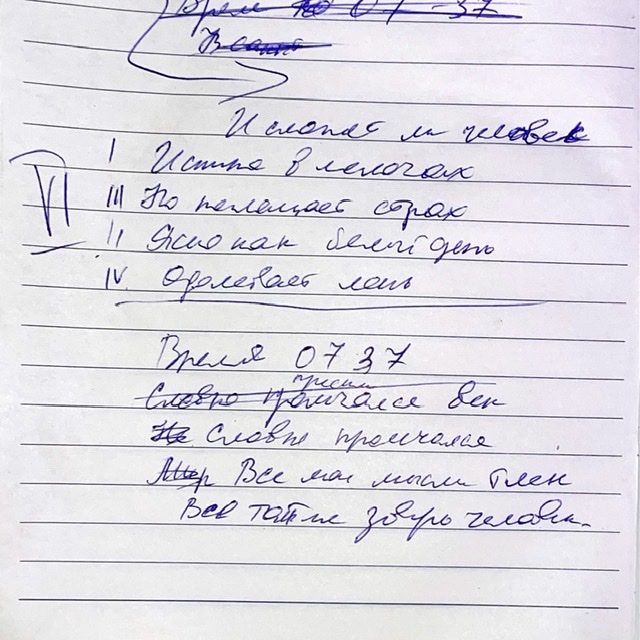 Время 07 37
И сломает ли человек
I Истина в мелочах
VI
III Но помещает страх
II Ясно как белый день
IV Одолевает лень
Время 07 37
Словно промчался век
Словно промчался
Все мои мысли тлен
Все тот же зверь человек.